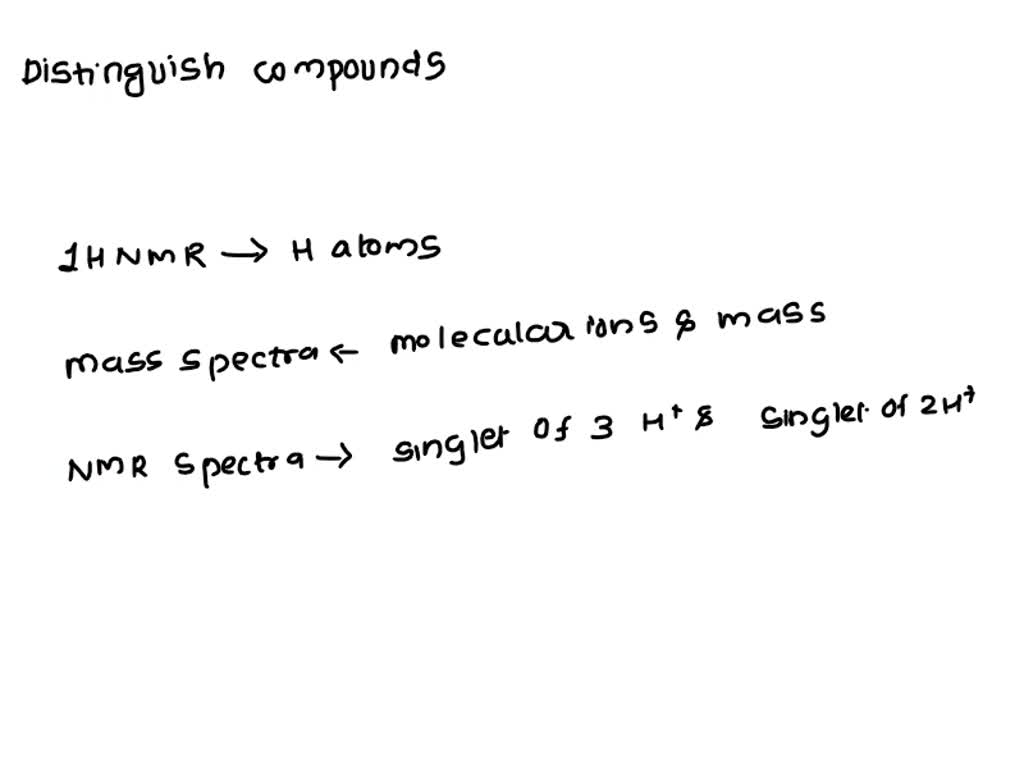 Distinguish compounds
1H NMR → H atoms
mass spectra ← molecular ions & mass
NMR spectra → singlet of 3 H⁺ & singlet of 2H⁺